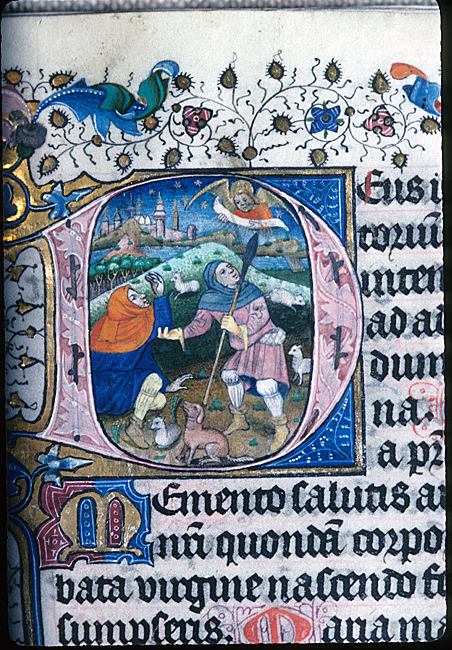 Deus i
toriũ
inten
ad ai
dum
na.
a pr
Memento salutis au
nr̃i quondã corpo
bata virgine nascendo fo
sumpseris. Maria ma